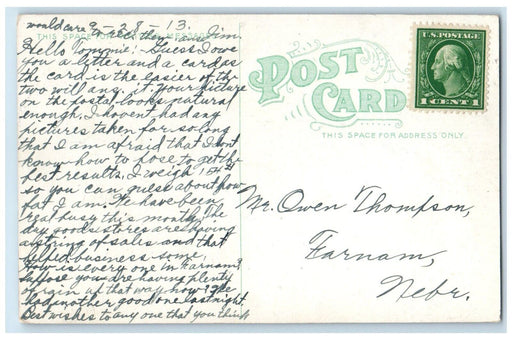 would care
9-28-13.
to see them anse Jim
Hello Tommie: Guess I owe
you a letter and a card as
the card is the easier of the
two will ans. it. Your picture
on the postal looks natural
enough. I havent had any
pictures taken for so long
that I am afraid that I dont
know how to pose to get the
best results. I weigh 154#
so you can guess about how
fat I am. We have been
real busy this month. The
dry goods stores are having
a string of sales and that
helped business some.
How is every one in Farnam?
Suppose you are having plenty
of rain up that way now? We
had another good one last night
Best wishes to any one that you think
THIS SPACE
POST
CARD
THIS SPACE FOR ADDRESS ONLY.
U.S. POSTAGE
1 CENT 1
Mr. Owen Thompson,
Farnam,
Nebr.